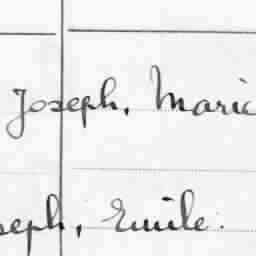 Joseph, Marie
seph, Emile.